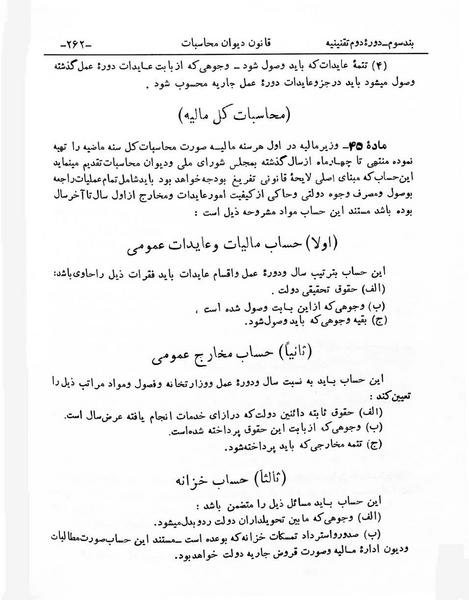 بند سوم ـ دورهٔ دوم تقنینیه قانون دیوان محاسبات ـ۲۶۲ـ
(۴) تتمهٔ عایدات که باید وصول شود ـ وجوهی که از بابت عایدات دورهٔ عمل گذشته
وصول میشود باید در جزو عایدات دورهٔ عمل جاریه محسوب شود .
(محاسبات کل مالیه)
مادهٔ ۴۵ـ وزیر مالیه در اول هر سنه مالیه صورت محاسبات کل سنه ماضیه را تهیه
نموده منتهی تا چهار ماه از سال گذشته بمجلس شورای ملی و دیوان محاسبات تقدیم مینماید
این حساب که مبنای اصلی لایحهٔ قانونی تفریغ بودجه خواهد بود باید شامل تمام عملیات راجعه
بوصول و مصرف وجوه دولتی و حاکی از کیفیت امور عایدات و مخارج از اول سال تا آخر سال
بوده باشد مستند این حساب مواد مشروحه ذیل است :
(اولا) حساب مالیات و عایدات عمومی
این حساب بترتیب سال و دورهٔ عمل و اقسام عایدات باید فقرات ذیل را حاوی باشد:
(الف) حقوق تحقیقی دولت .
(ب) وجوهی که از این بابت وصول شده است .
(ج) بقیه وجوهی که باید وصول شود.
(ثانیاً) حساب مخارج عمومی
این حساب باید به نسبت سال و دورهٔ عمل و وزارتخانه و فصول و مواد مراتب ذیل را
تعیین کند :
(الف) حقوق ثابته دائنین دولت که در ازای خدمات انجام یافته عرض سال است.
(ب) وجوهی که از بابت این حقوق پرداخته شده است.
(ج) تتمه مخارجی که باید پرداخته شود.
(ثالثاً) حساب خزانه
این حساب باید مسائل ذیل را متضمن باشد :
(الف) وجوهی که ما بین تحویلداران دولت رد و بدل میشود.
(ب) صدور و استرداد تمسکات خزانه که بوعده است ـ مستند این حساب صورت مطالبات
و دیون ادارهٔ مالیه و صورت قروض جاریه دولت خواهد بود.